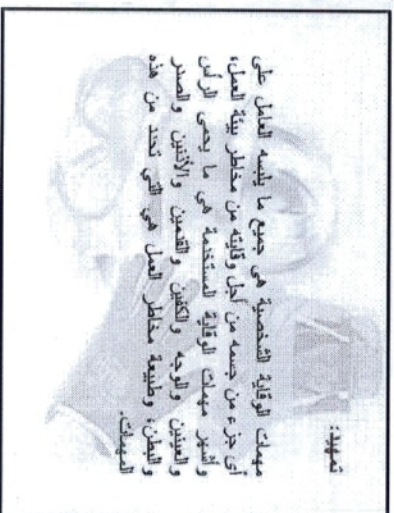 تمهيد:
مهمات الوقاية الشخصية هى جميع ما يلبسه العامل على
أى جزء من جسمه من أجل وقايته من مخاطر بيئة العمل،
وأشهر مهمات الوقاية المستخدمة هى ما يحمى الرأس
والعينين والوجه والكفين والقدمين والأذنين والصدر
والبطن، وطبيعة مخاطر العمل هي التي تحدد من هذه
المهمات.